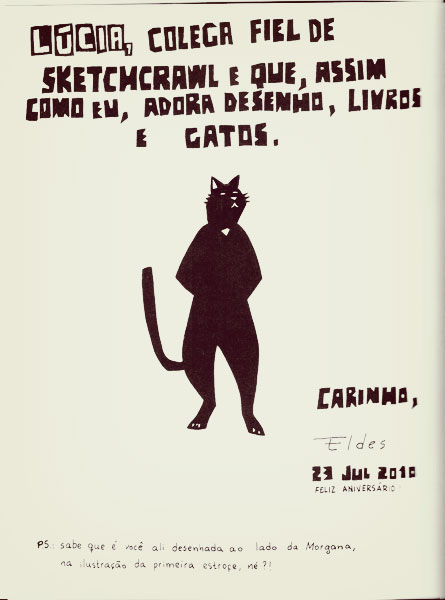 LÚCIA, COLEGA FIEL DE
SKETCHCRAWL E QUE, ASSIM
COMO EU, ADORA DESENHO, LIVROS
E GATOS.
CARINHO,
Eldes
23 JUL 2010
FELIZ ANIVERSÁRIO
PS: sabe que é você ali desenhada ao lado da Morgana,
na ilustração da primeira estroçe, né?!